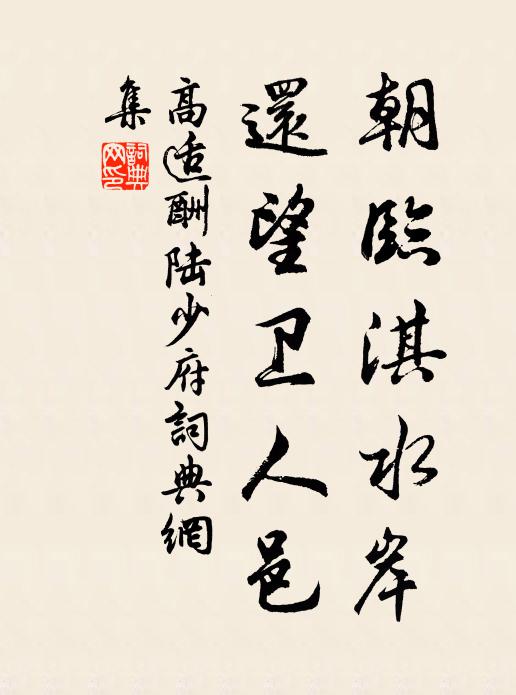 朝臨淇水岸
還望卫人邑
高适酬陆少府詞典網
集
詞典網